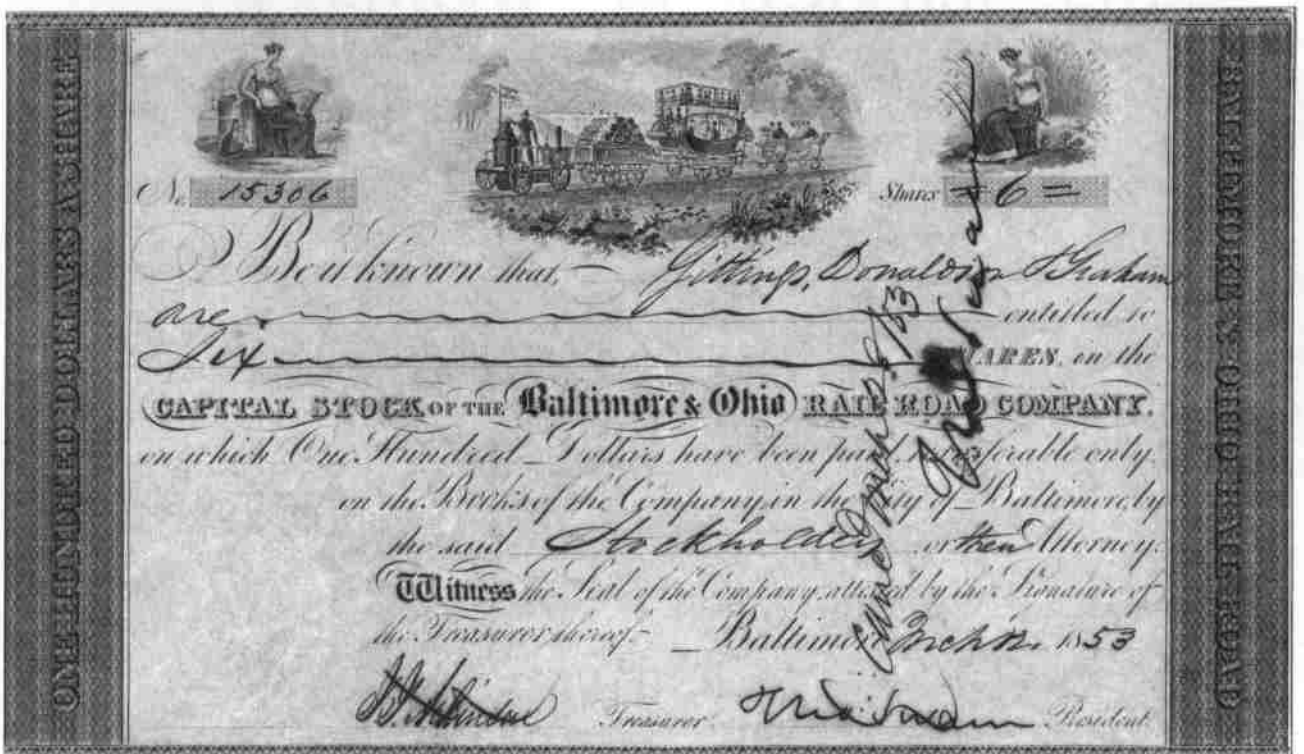 ONE HUNDRED DOLLARS A SHARE
No. 15306
Shares = 6 =
Be it known that, Gittings, Donaldson & Graham
are entitled to
Six SHARES, on the
CAPITAL STOCK OF THE Baltimore & Ohio RAIL ROAD COMPANY.
on which One Hundred Dollars have been paid transferable only
on the Books of the Company in the City of Baltimore, by
the said Stockholders or their Attorney.
Witness the Seal of the Company, attested by the Signature of
the Treasurer thereof. Baltimore 1853
Treasurer President
BALTIMORE & OHIO RAIL ROAD